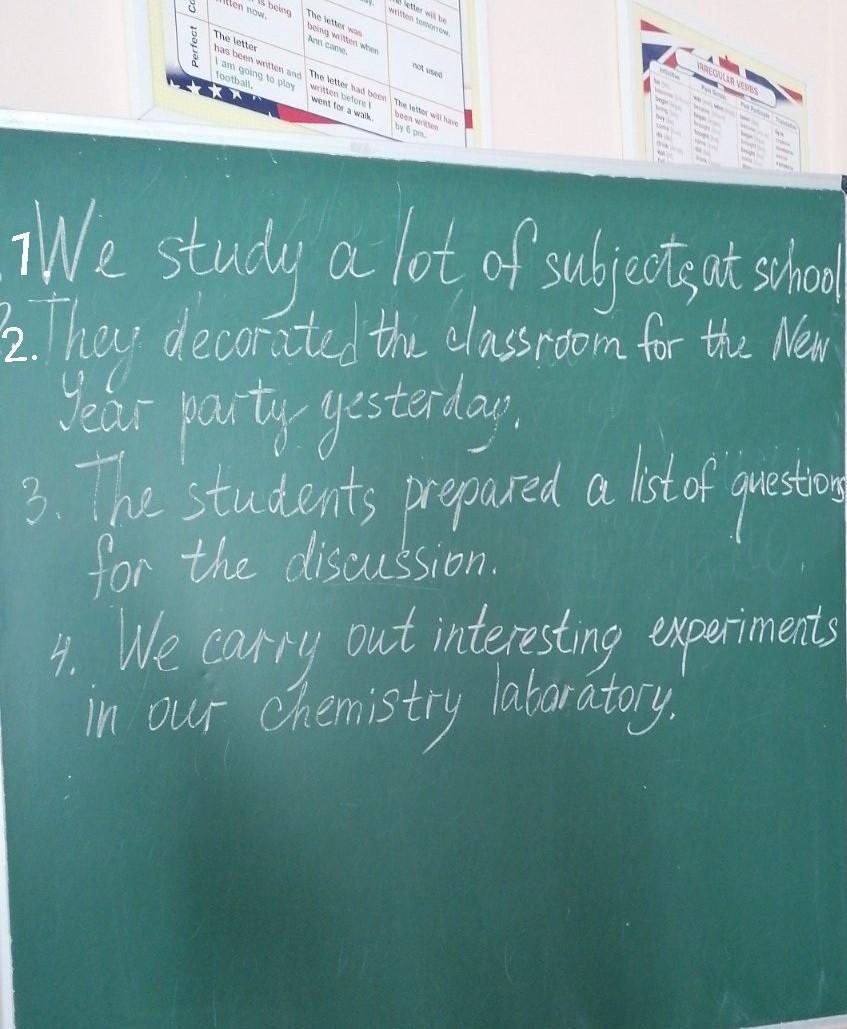 is being
ritten now.
The letter was
being written when
Ann came.
e letter will be
written tomorrow.
Perfect
The letter
has been written and
I am going to play
football.
The letter had been
written before I
went for a walk.
not used
The letter will have
been written
by 6 pm.
IRREGULAR VERBS
Infinitive
Past Simple
Past Participle
Translation
1. We study a lot of subjects at school
2. They decorated the classroom for the New
Year party yesterday.
3. The students prepared a list of questions
for the discussion.
4. We carry out interesting experiments
in our chemistry labaratory.